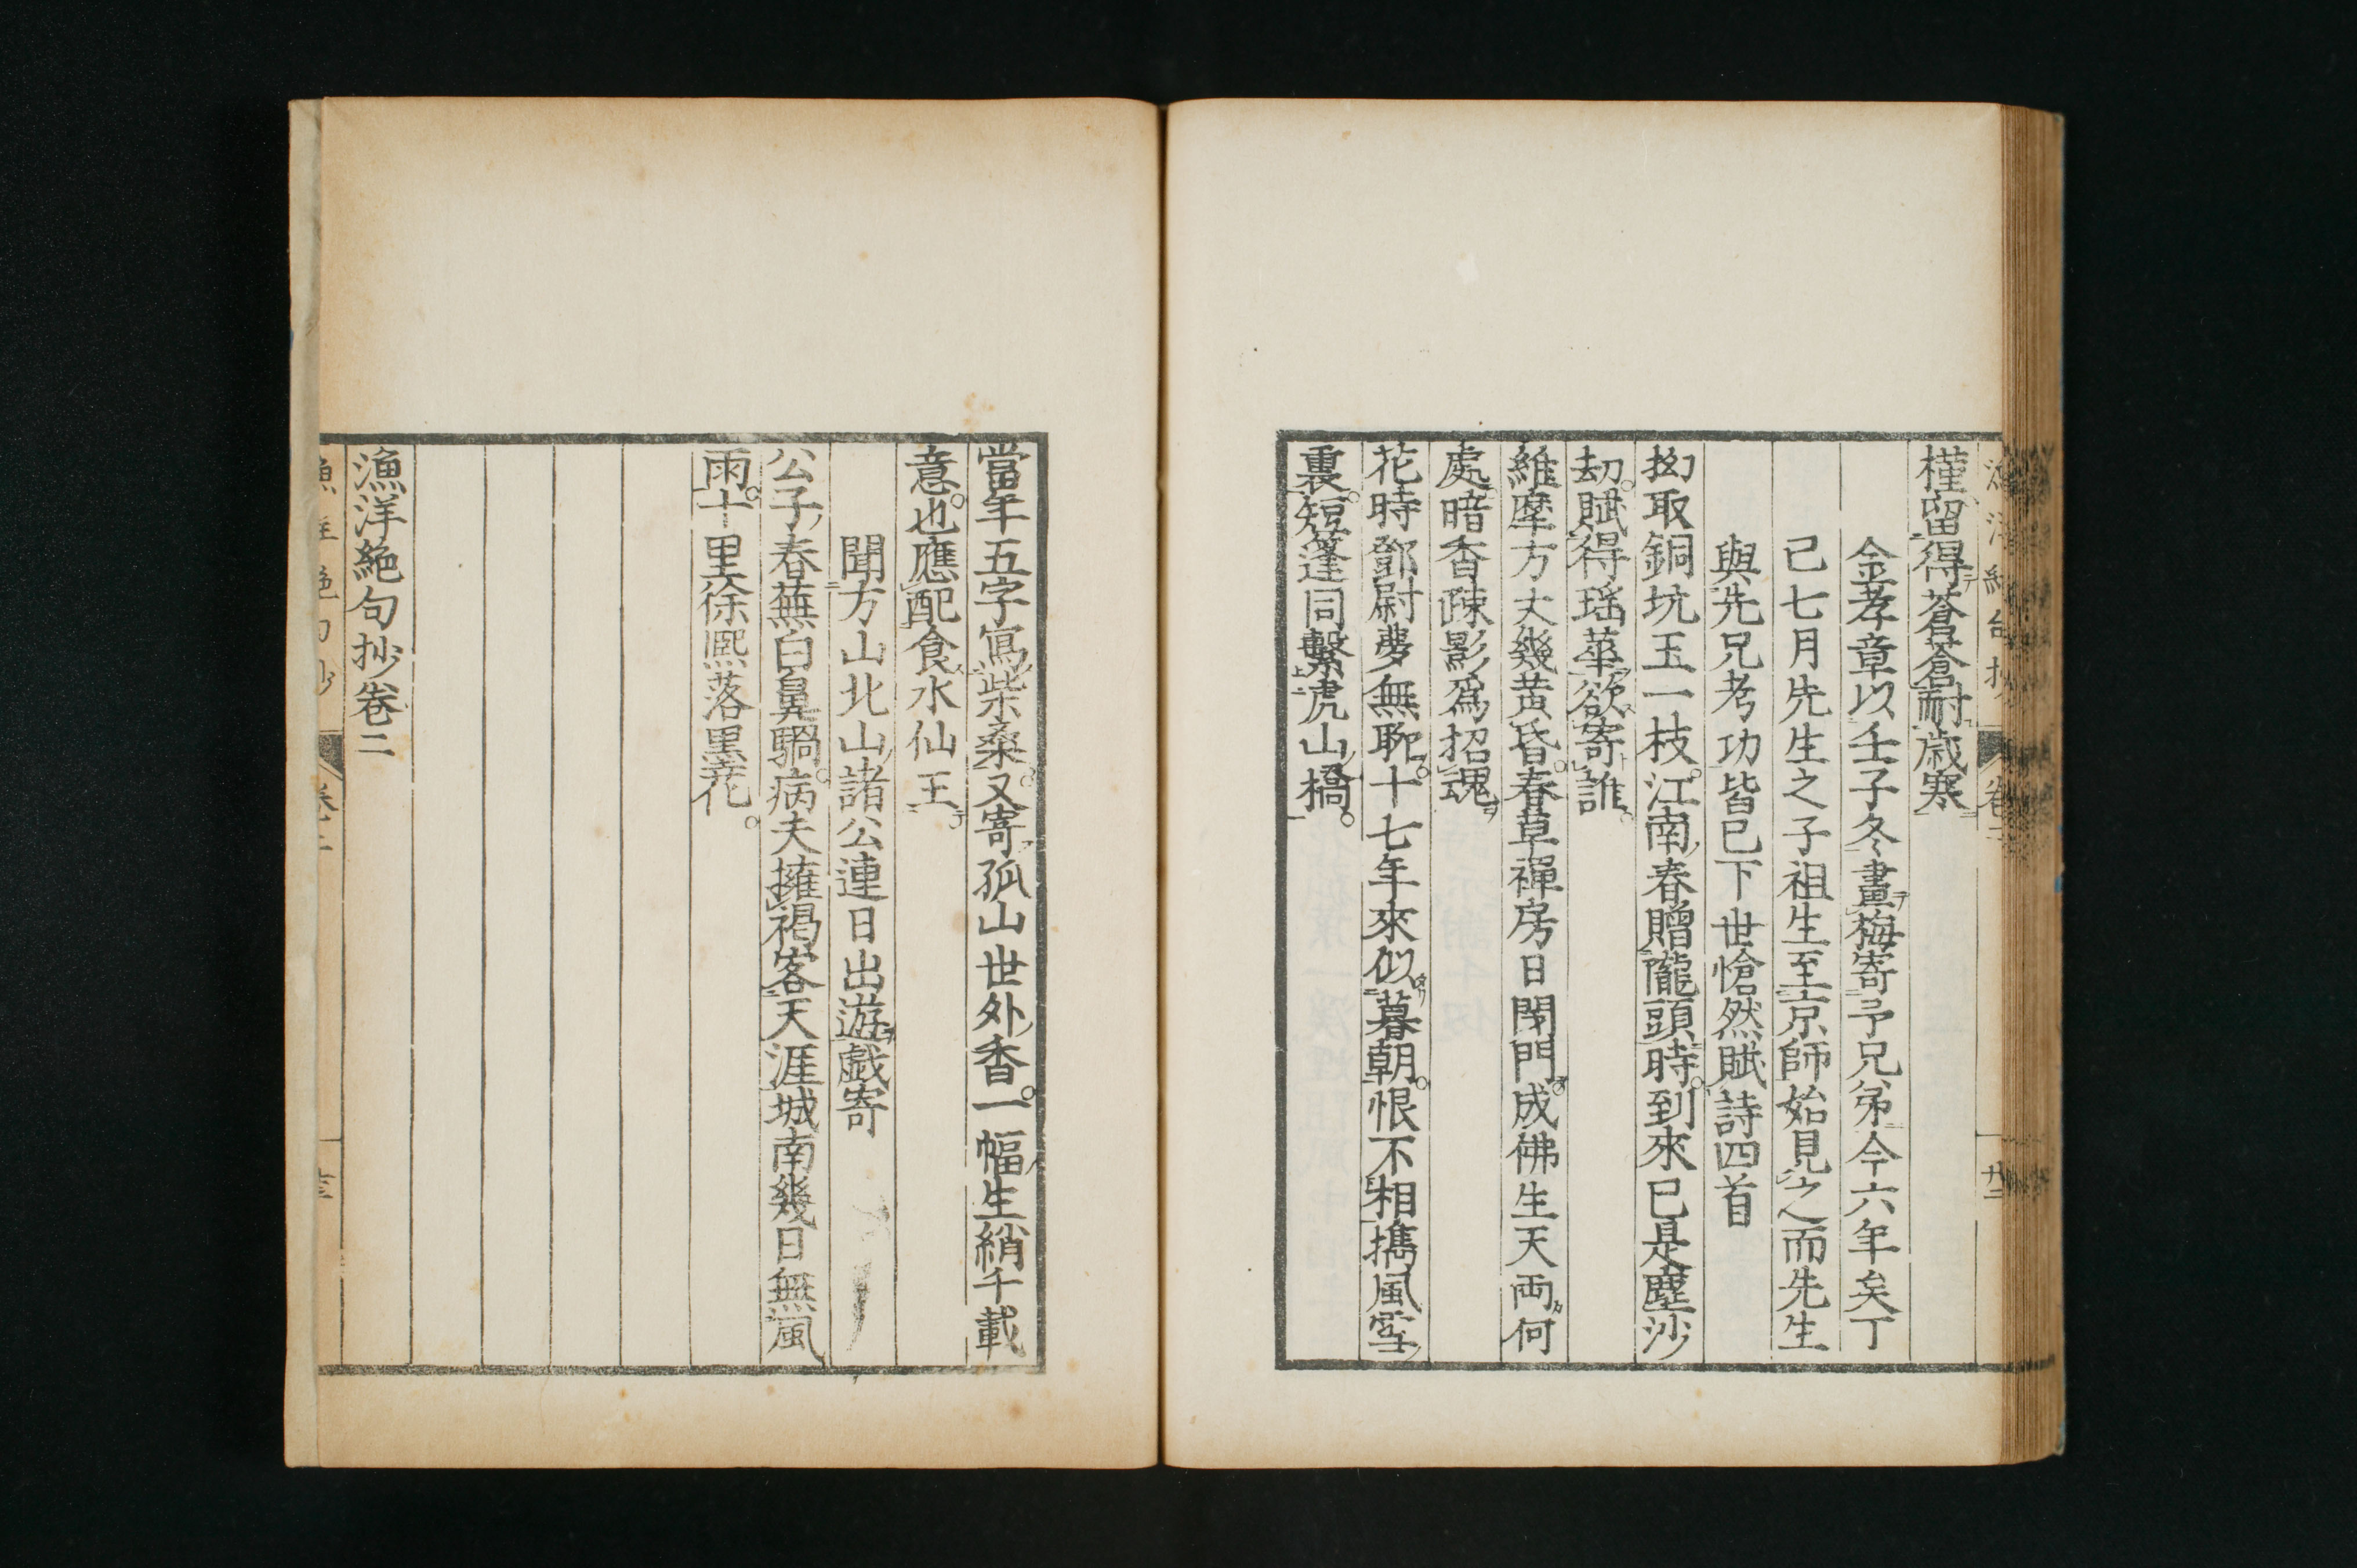 槿留得蒼蒼耐歳寒
金孝章以壬子冬畫梅寄予兄弟今六年矣丁
己七月先生之子祖生至京師始見之而先生
與先兄考功皆已下世愴然賦詩四首
拗取銅坑玉一枝江南春贈隴頭時到來已是塵沙
刧賦得瑶華欲寄誰
維摩方丈幾黄昏春草禪房日閉門成佛生天両何
處暗香踈影爲招魂
花時鄧尉夢無聊十七年來似暮朝恨不相攜風雪
裏短篷同繫虎山橋
當年五字寫柴桑又寄孤山世外香一幅生綃千載
意也應配食水仙王
聞方山北山諸公連日出遊戯寄
公子春蕪白鼻騧病夫擁褐客天涯城南幾日無風
雨十里徐熙落墨花
漁洋絶句抄卷二
漁洋絶句抄 卷二